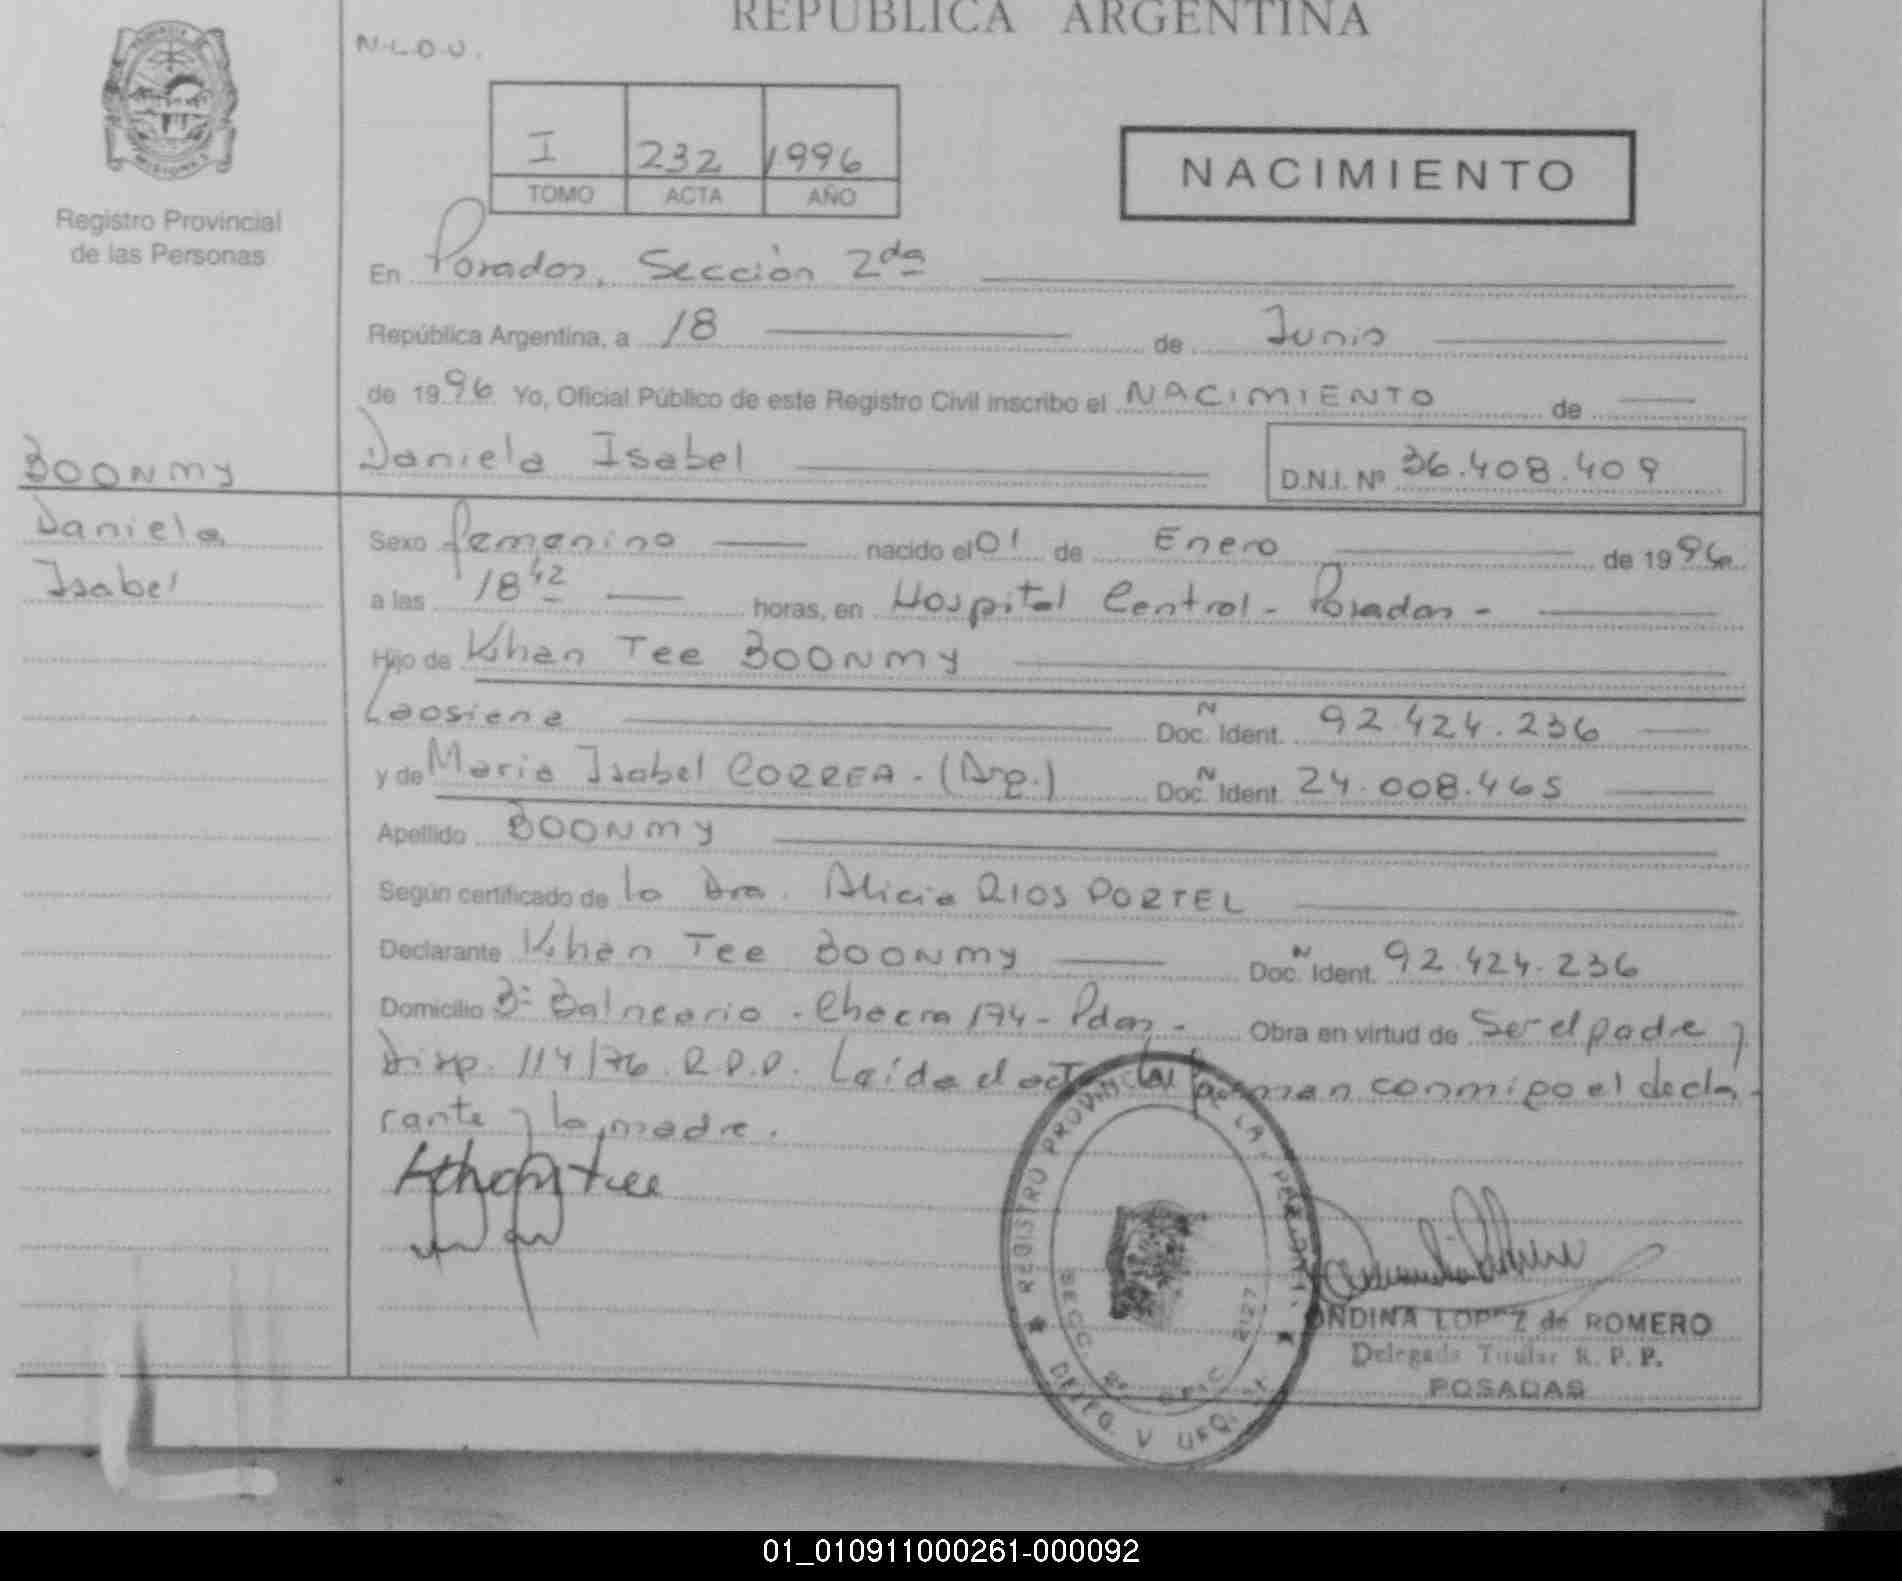 REPUBLICA ARGENTINA
N.L.O.U.
I 232 1996
TOMO ACTA AÑO
NACIMIENTO
Registro Provincial
de las Personas
En Posadas, Sección 2da
República Argentina, a 18 de Junio
de 1996 Yo, Oficial Público de este Registro Civil inscribo el NACIMIENTO de
Daniela Isabel D.N.I. Nº 36.408.409
BOONMY
Daniela
Isabel
Sexo femenino nacido el 01 de Enero de 1996
a las 18 42 horas, en Hospital Central - Posadas -
Hijo de Khan Tee BOONMY
Laosiena Doc. N Ident. 92.424.236
y de Maria Isabel CORREA - (Arg.) Doc. N Ident. 24.008.465
Apellido BOONMY
Según certificado de la Dra. Alicia RIOS PORTEL
Declarante Khan Tee BOONMY Doc. N Ident. 92.424.236
Domicilio Bº Balneario - Chacra 174 - Pdas - Obra en virtud de Ser el padre y
Disp. 114/76 R.P.P. Leída el acta la firman conmigo el decla-
rante y la madre.
REGISTRO PROVINCIAL DE LAS PERSONAS
SECC. 2ª
DELEG. V URQUIZA
ONDINA LOPEZ de ROMERO
Delegada Titular R. P. P.
POSADAS
01_010911000261-000092